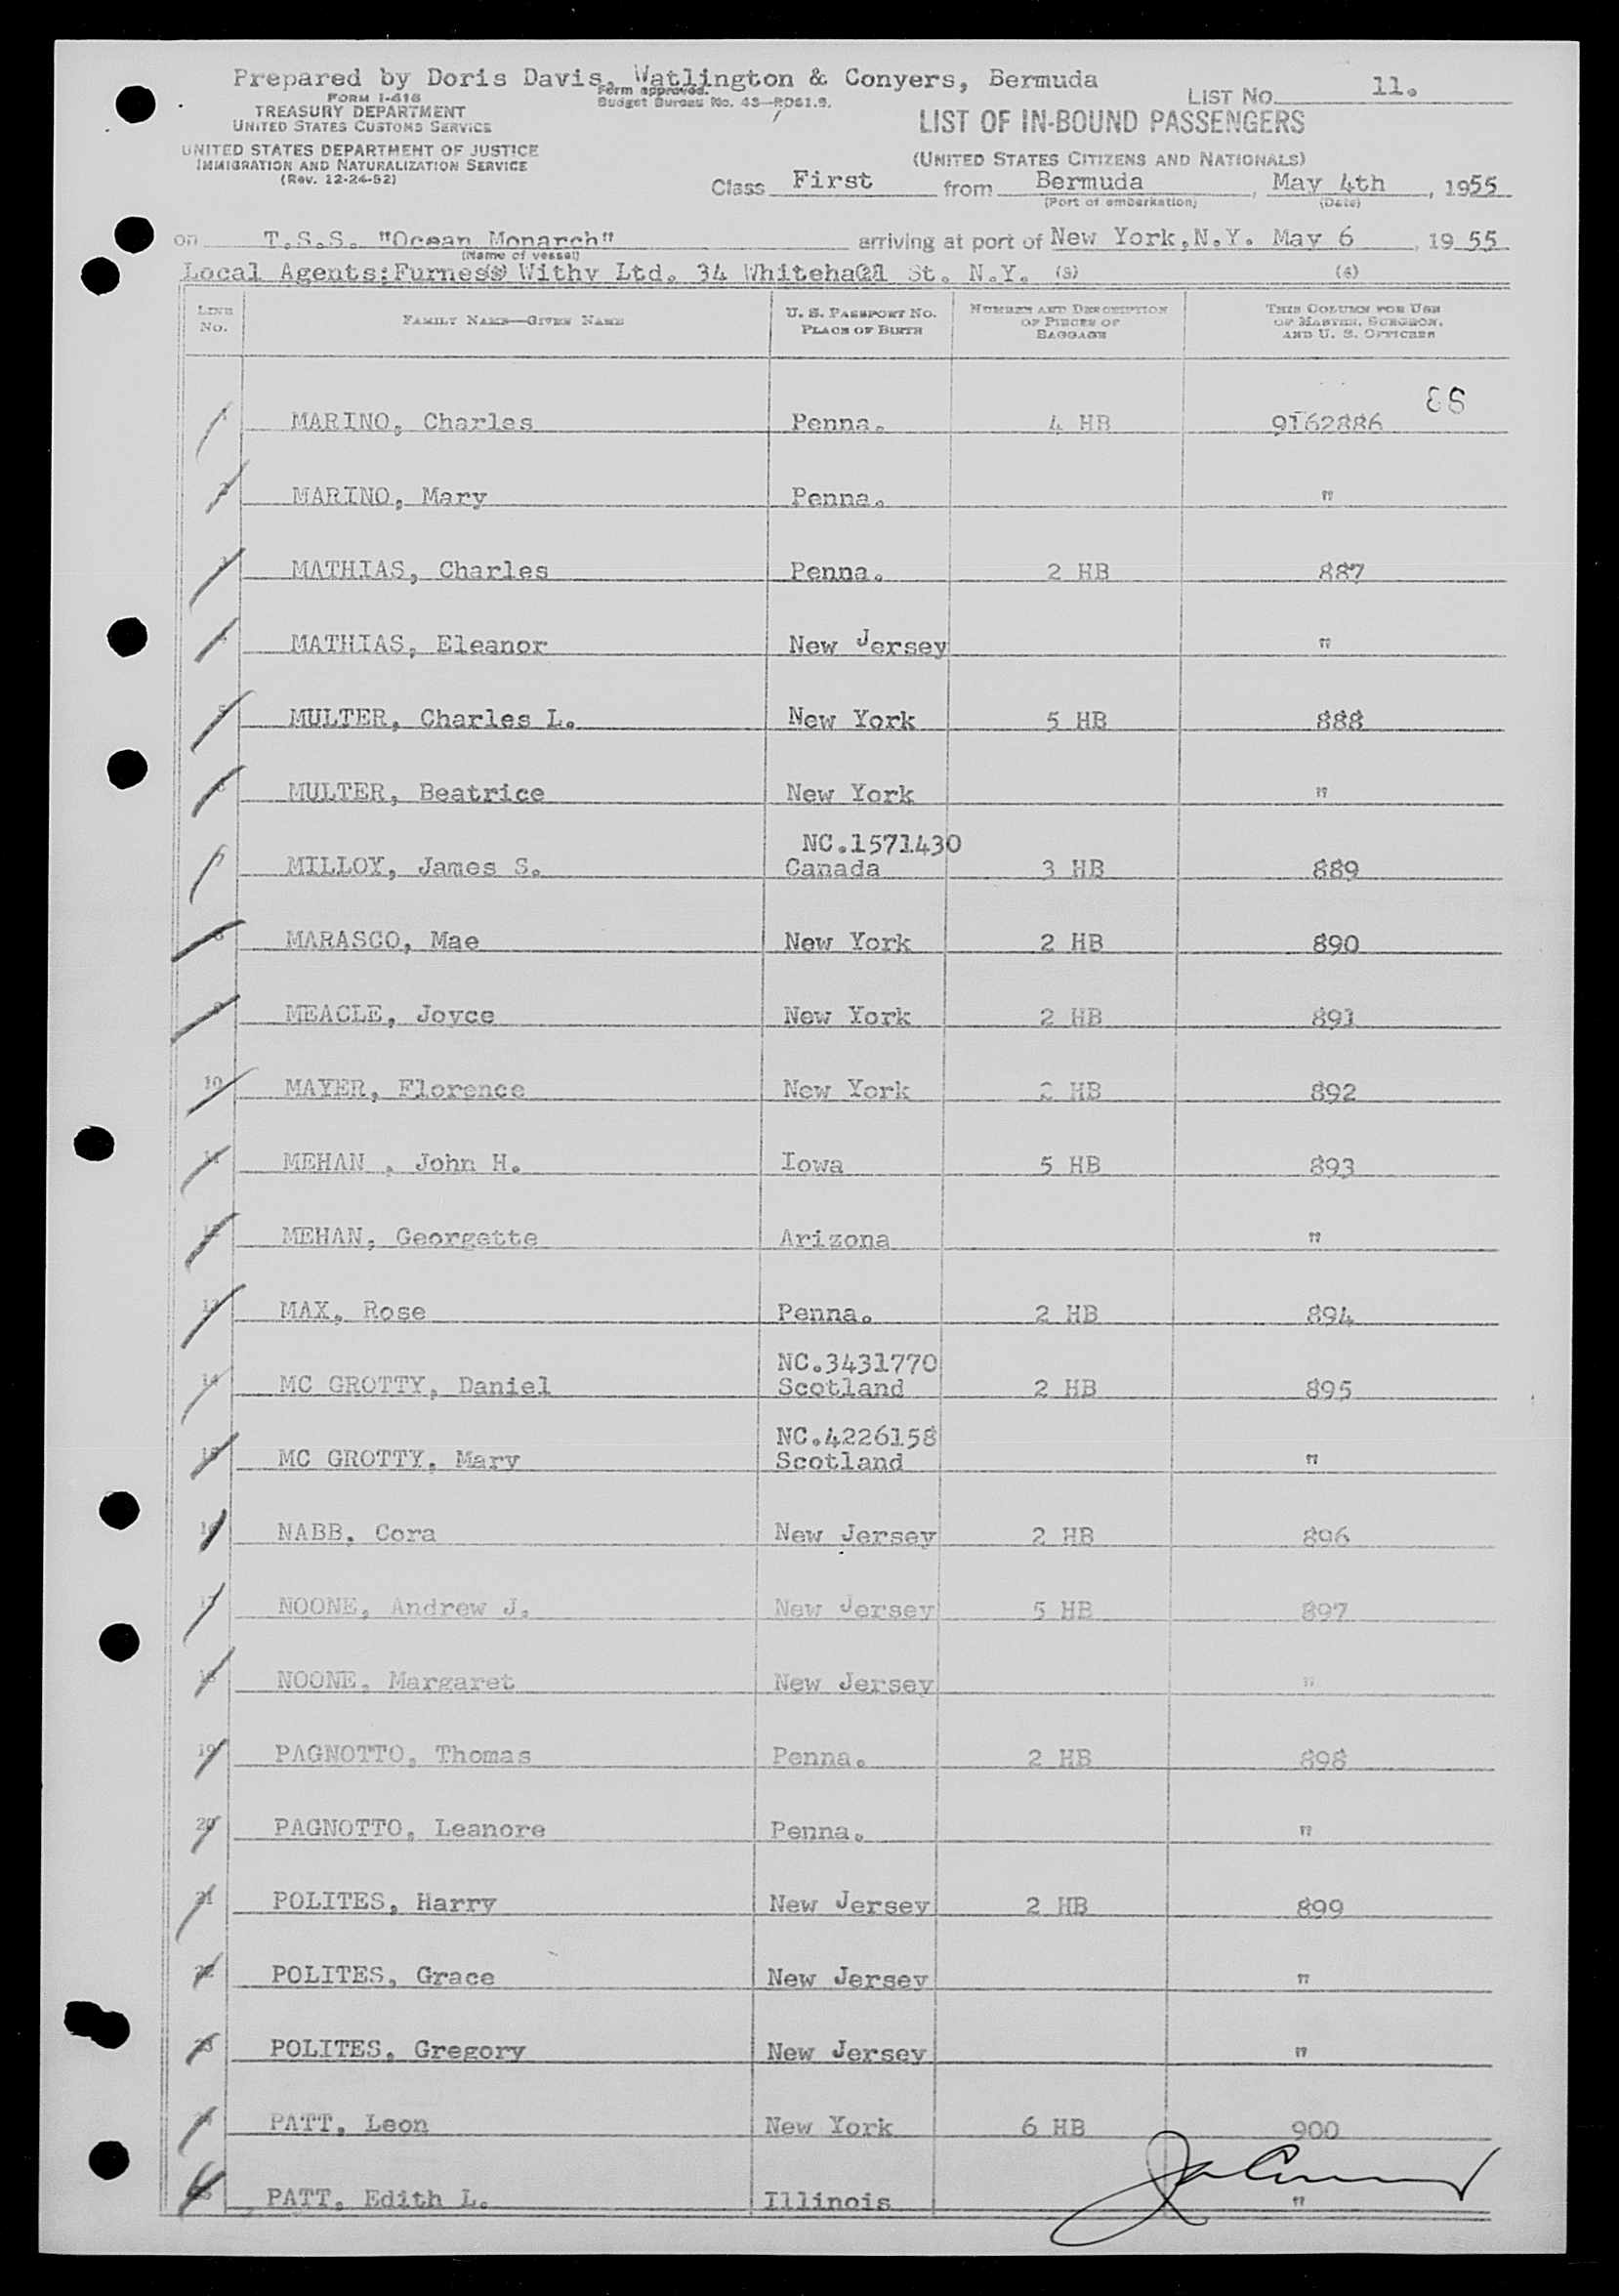 Prepared by Doris Davis, Watlington & Conyers, Bermuda
FORM I-418
TREASURY DEPARTMENT
UNITED STATES CUSTOMS SERVICE
UNITED STATES DEPARTMENT OF JUSTICE
IMMIGRATION AND NATURALIZATION SERVICE
(Rev. 12-24-52)
Form approved.
Budget Bureau No. 43—R061.9.
LIST No. 11.
LIST OF IN-BOUND PASSENGERS
(UNITED STATES CITIZENS AND NATIONALS)
Class First from Bermuda, May 4th, 1955
(Port of embarkation) (Date)
on T.S.S. "Ocean Monarch" arriving at port of New York,N.Y. May 6, 19 55
(Name of vessel)
Local Agents:Furness Withy Ltd. 34 Whitehall St. N.Y. (3) (4)
LINE No. FAMILY NAME—GIVEN NAME U. S. PASSPORT NO. PLACE OF BIRTH NUMBER AND DESCRIPTION OF PIECES OF BAGGAGE THIS COLUMN FOR USE OF MASTER, SURGEON, AND U. S. OFFICERS
1 MARINO, Charles Penna. 4 HB 9162886
2 MARINO, Mary Penna. "
3 MATHIAS, Charles Penna. 2 HB 887
4 MATHIAS, Eleanor New Jersey "
5 MULTER, Charles L. New York 5 HB 888
6 MULTER, Beatrice New York "
NC.1571430
7 MILLOY, James S. Canada 3 HB 889
8 MARASCO, Mae New York 2 HB 890
9 MEACLE, Joyce New York 2 HB 891
10 MAYER, Florence New York 2 HB 892
11 MEHAN , John H. Iowa 5 HB 893
12 MEHAN, Georgette Arizona "
13 MAX, Rose Penna. 2 HB 894
NC.3431770
14 MC GROTTY, Daniel Scotland 2 HB 895
NC.4226158
15 MC GROTTY, Mary Scotland "
16 NABB, Cora New Jersey 2 HB 896
17 NOONE, Andrew J. New Jersey 5 HB 897
18 NOONE, Margaret New Jersey "
19 PAGNOTTO, Thomas Penna. 2 HB 898
20 PAGNOTTO, Leanore Penna. "
21 POLITES, Harry New Jersey 2 HB 899
22 POLITES, Grace New Jersey "
23 POLITES, Gregory New Jersey "
24 PATT, Leon New York 6 HB 900
25 PATT, Edith L. Illinois "